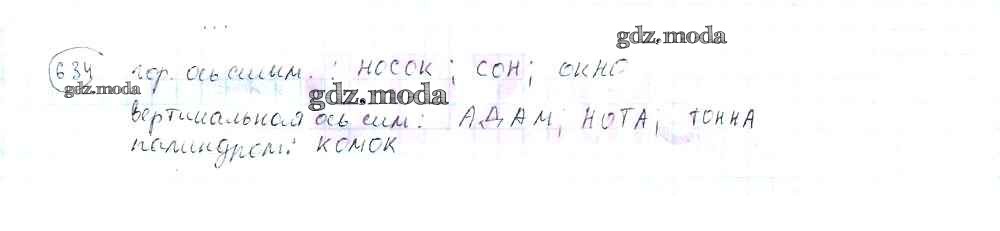 gdz.moda
634 гор. ось симм. : НОСОК; СОН; ОКНО
gdz.moda
gdz.moda
вертикальная ось сим: АДАМ; НОТА; ТОННА
палиндром: КОМОК